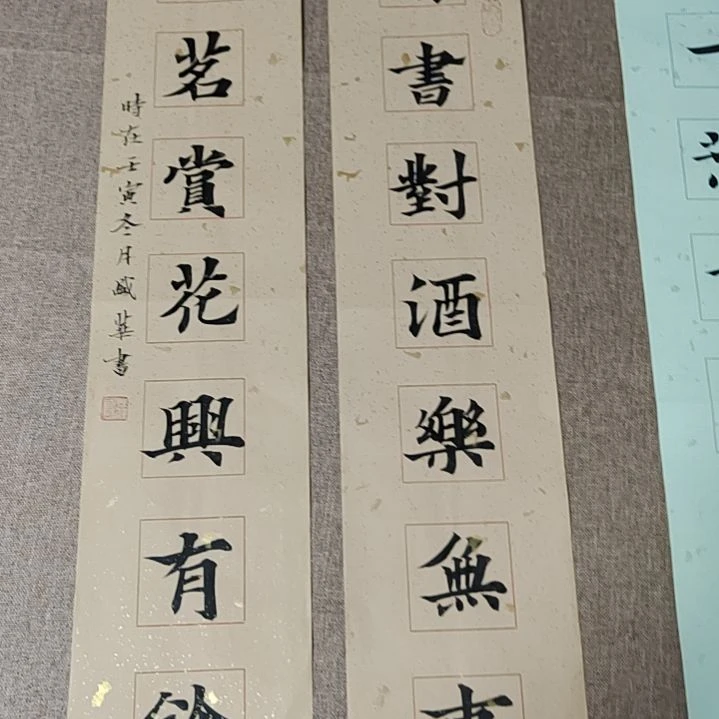 書對酒樂無
茗賞花興有餘
時在壬寅冬月盛華書